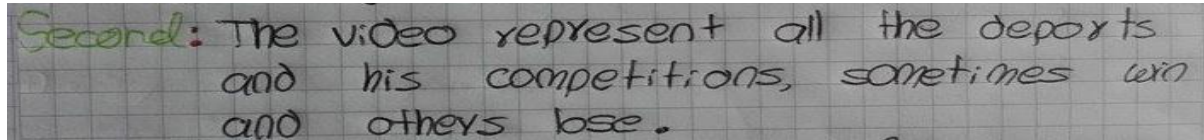 Second: The video represent all the deports
and his competitions, sometimes win
and others lose.